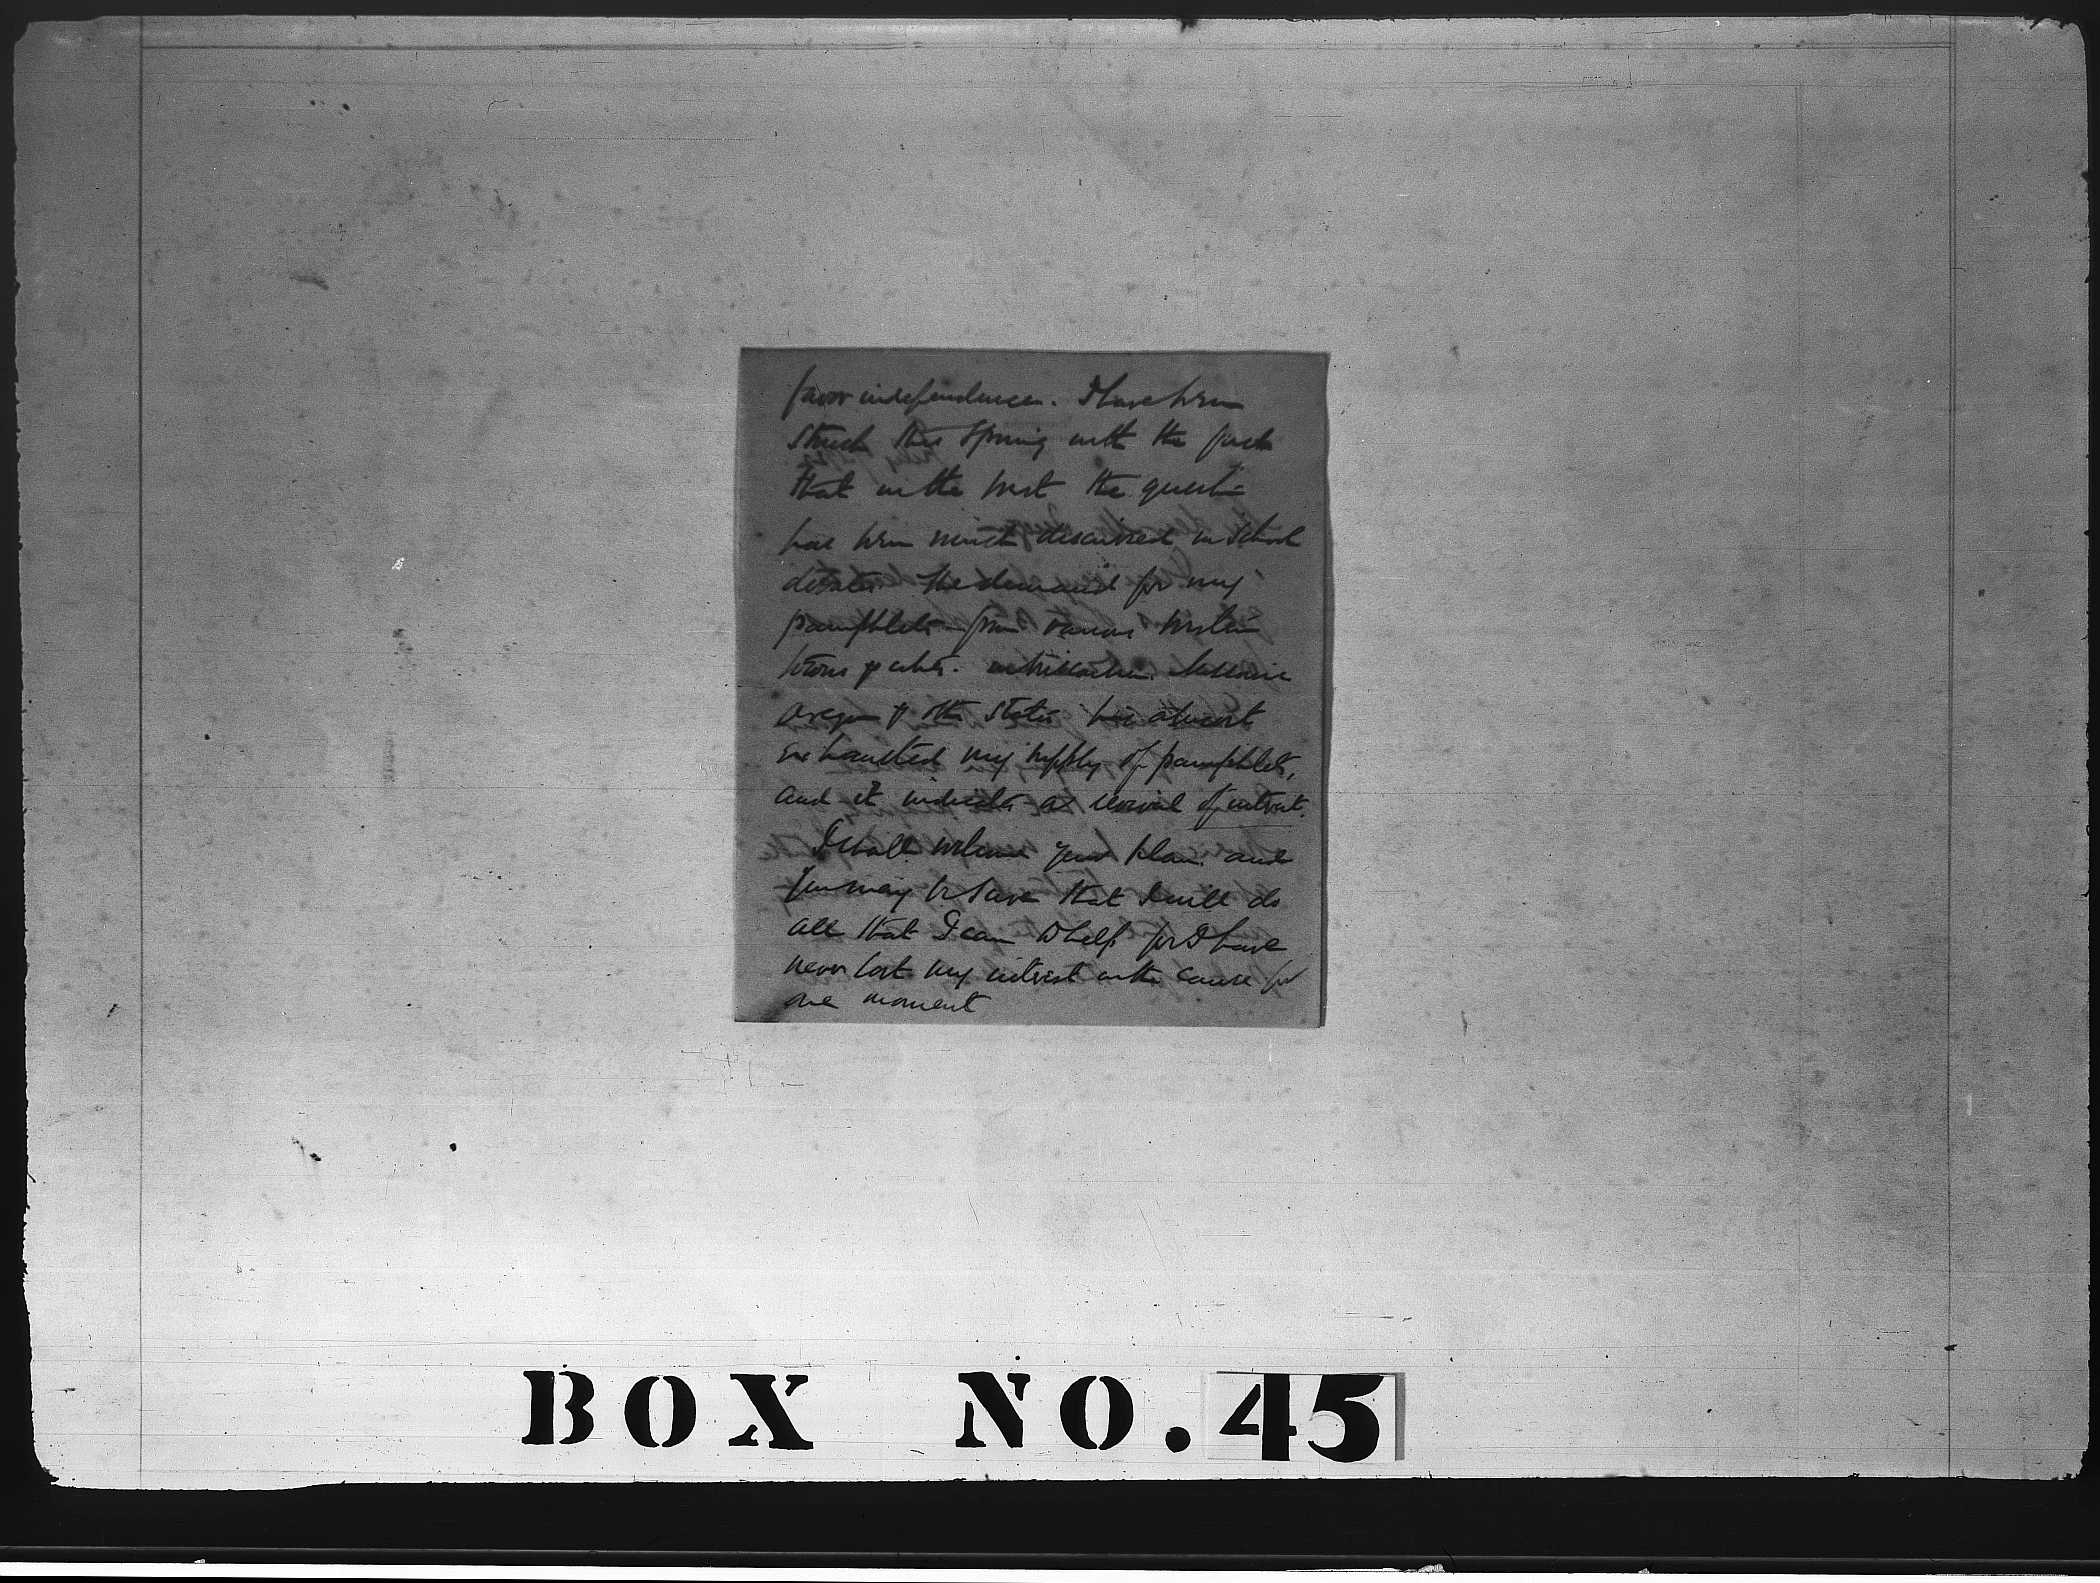 favor independence. I have been
struck this spring with the fact
that in the west the question
has been much discussed in school
debates. The demand for my
pamphlets from various western
towns & cities. in Wisconsin
Oregon & other states has almost
exhausted my supply of pamphlets,
and it indicates a revival of interest.
I shall welcome your plan and
you may be sure that I will do
all that I can to help for I have
never lost my interest in the cause for
one moment
BOX NO. 45